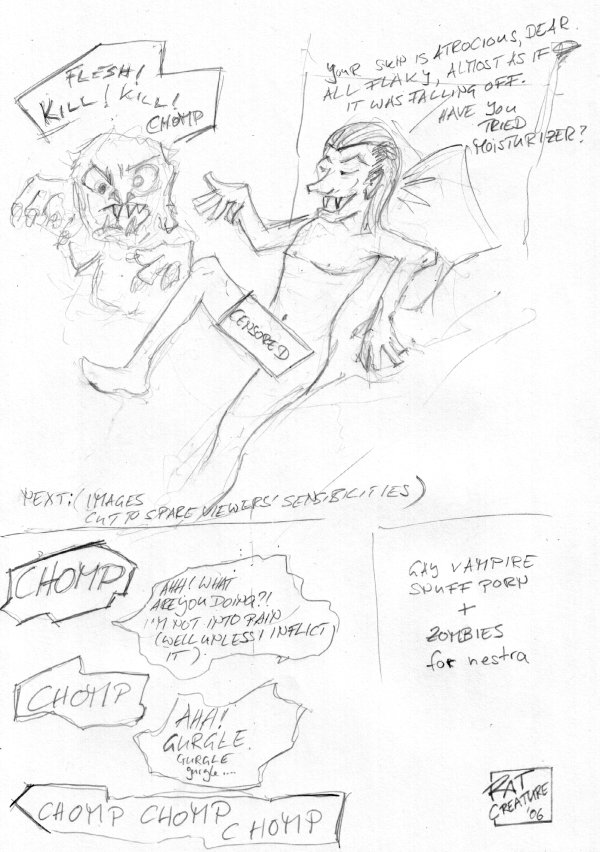 FLESH!
KILL! KILL!
CHOMP
YOUR SKIN IS ATROCIOUS, DEAR.
ALL FLAKY, ALMOST AS IF
IT WAS FALLING OFF.
HAVE YOU
TRIED
MOISTURIZER?
CENSORED
NEXT: (IMAGES
CUT TO SPARE VIEWERS' SENSIBILITIES)
CHOMP
AHH! WHAT
ARE YOU DOING?!
I'M NOT INTO PAIN
(WELL UNLESS I INFLICT
IT).
CHOMP
AHH!
GURGLE.
GURGLE
gurgle....
CHOMP CHOMP
CHOMP
GAY VAMPIRE
SNUFF PORN
+
ZOMBIES
for nestra
RAT
CREATURE
'06